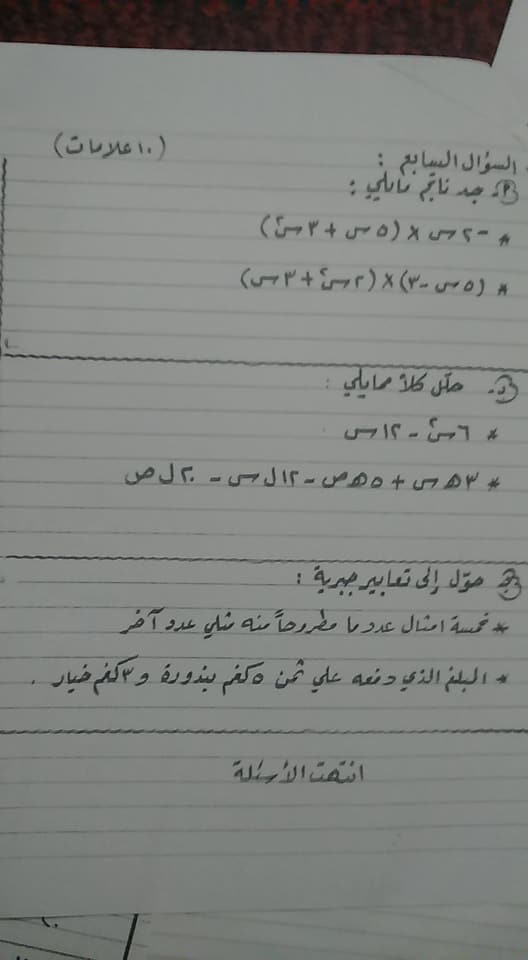 السؤال السابع : (١٠ علامات)
أ- جد ناتج مايلي :
* -٢س × (٥س + ٣س٢)
* (٥س - ٣) × (٢س٢ + ٣س)
ب- حلل كلاً ممايلي :
* ٦س٢ - ١٢س
* ٣هـ س + ٥هـ ص - ١٢ل س - ٢٠ل ص
ج- حوّل إلى تعابير جبرية :
* خمسة امثال عدد ما مطروحاً منه مثلي عدد آخر
* المبلغ الذي دفعه علي ثمن ٥ كغم بندورة و ٣ كغم خيار .
انتهت الأسئلة